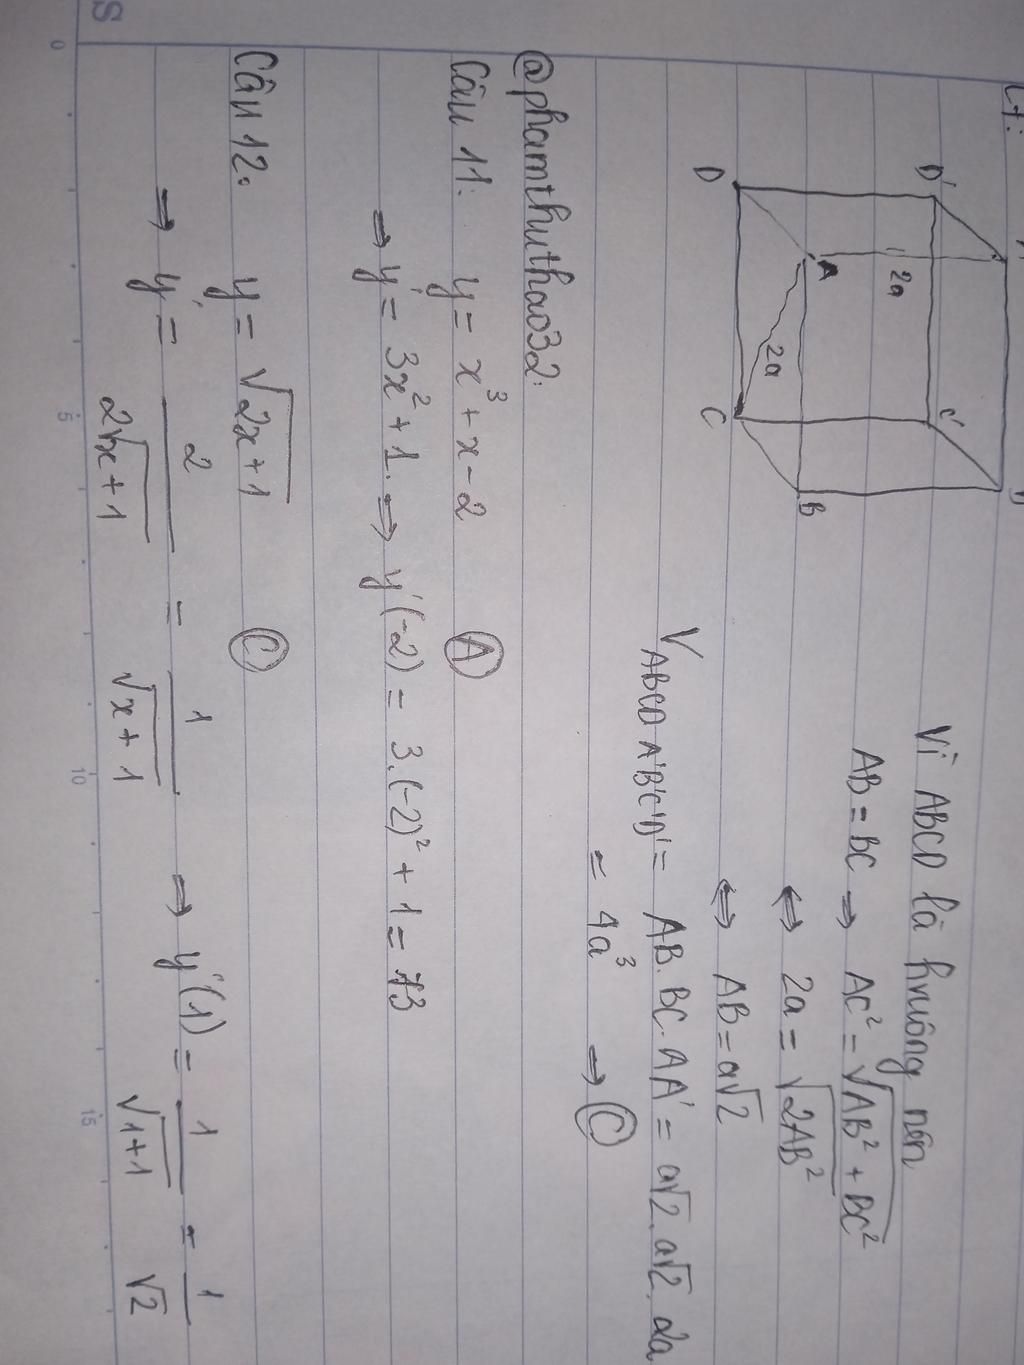 D' C'
2a
A B
2a
D C
Vì ABCD là hvuông nên
AB = BC → AC² = √AB² + BC²
⇔ 2a = √2AB²
⇔ AB = a√2
V ABCD A'B'C'D' = AB. BC. AA' = a√2. a√2. 2a
= 4a³ → C
@phamthuthao32:
Câu 11: y = x³ + x - 2 A
⇒ y' = 3x² + 1. ⇒ y'(-2) = 3.(-2)² + 1 = 13
Câu 12: y = √2x+1 C
⇒ y' = 2/2√x+1 = 1/√x+1 ⇒ y'(1) = 1/√1+1 = 1/√2
S
0 5 10 15